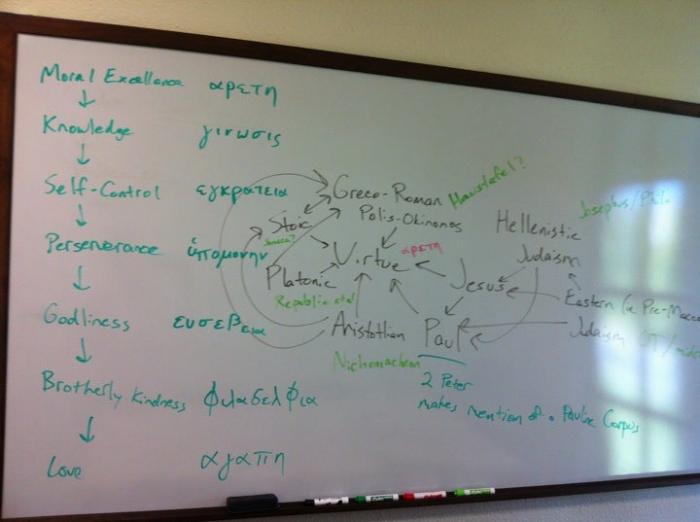 Moral Excellence αρετη
Knowledge γινωσις
Self-Control εγκρατεια
Perserverance ὑπομονην
Godliness ευσεβεια
Brotherly Kindness φιλαδελφια
Love αγαπη
Greco-Roman Haustafel?
Polis-Okinonos
Stoic
Seneca?
Virtue αρετη
Platonic
Republic et al
Aristotlian
Nichomachean
Jesus
Paul
2 Peter
makes mention of a Pauline Corpus
Josephus/Philo
Hellenistic
Judaism
Eastern (ie Pre-Macca
Judaism OT/